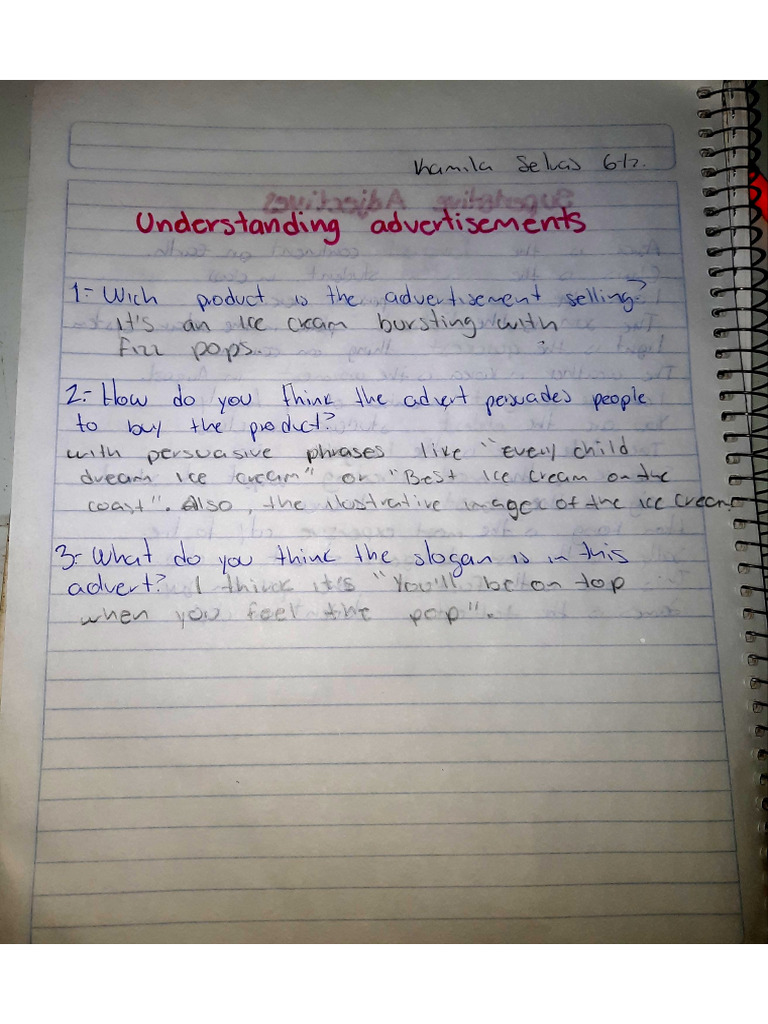 Kamila Selvas 6-12.
Superlative Adjectives
Understanding advertisements
1:- Wich product is the advertisement selling?
It's an Ice cream bursting with
fizz pops.
2:- How do you think the advert persuades people
to buy the product?
with persuasive phrases like "every child
dream ice cream" or "Best Ice cream on the
coast". Also, the ilustrative image of the ice cream.
3:- What do you think the slogan is in this
advert? I think it's "You'll be on top
when you feel the pop".